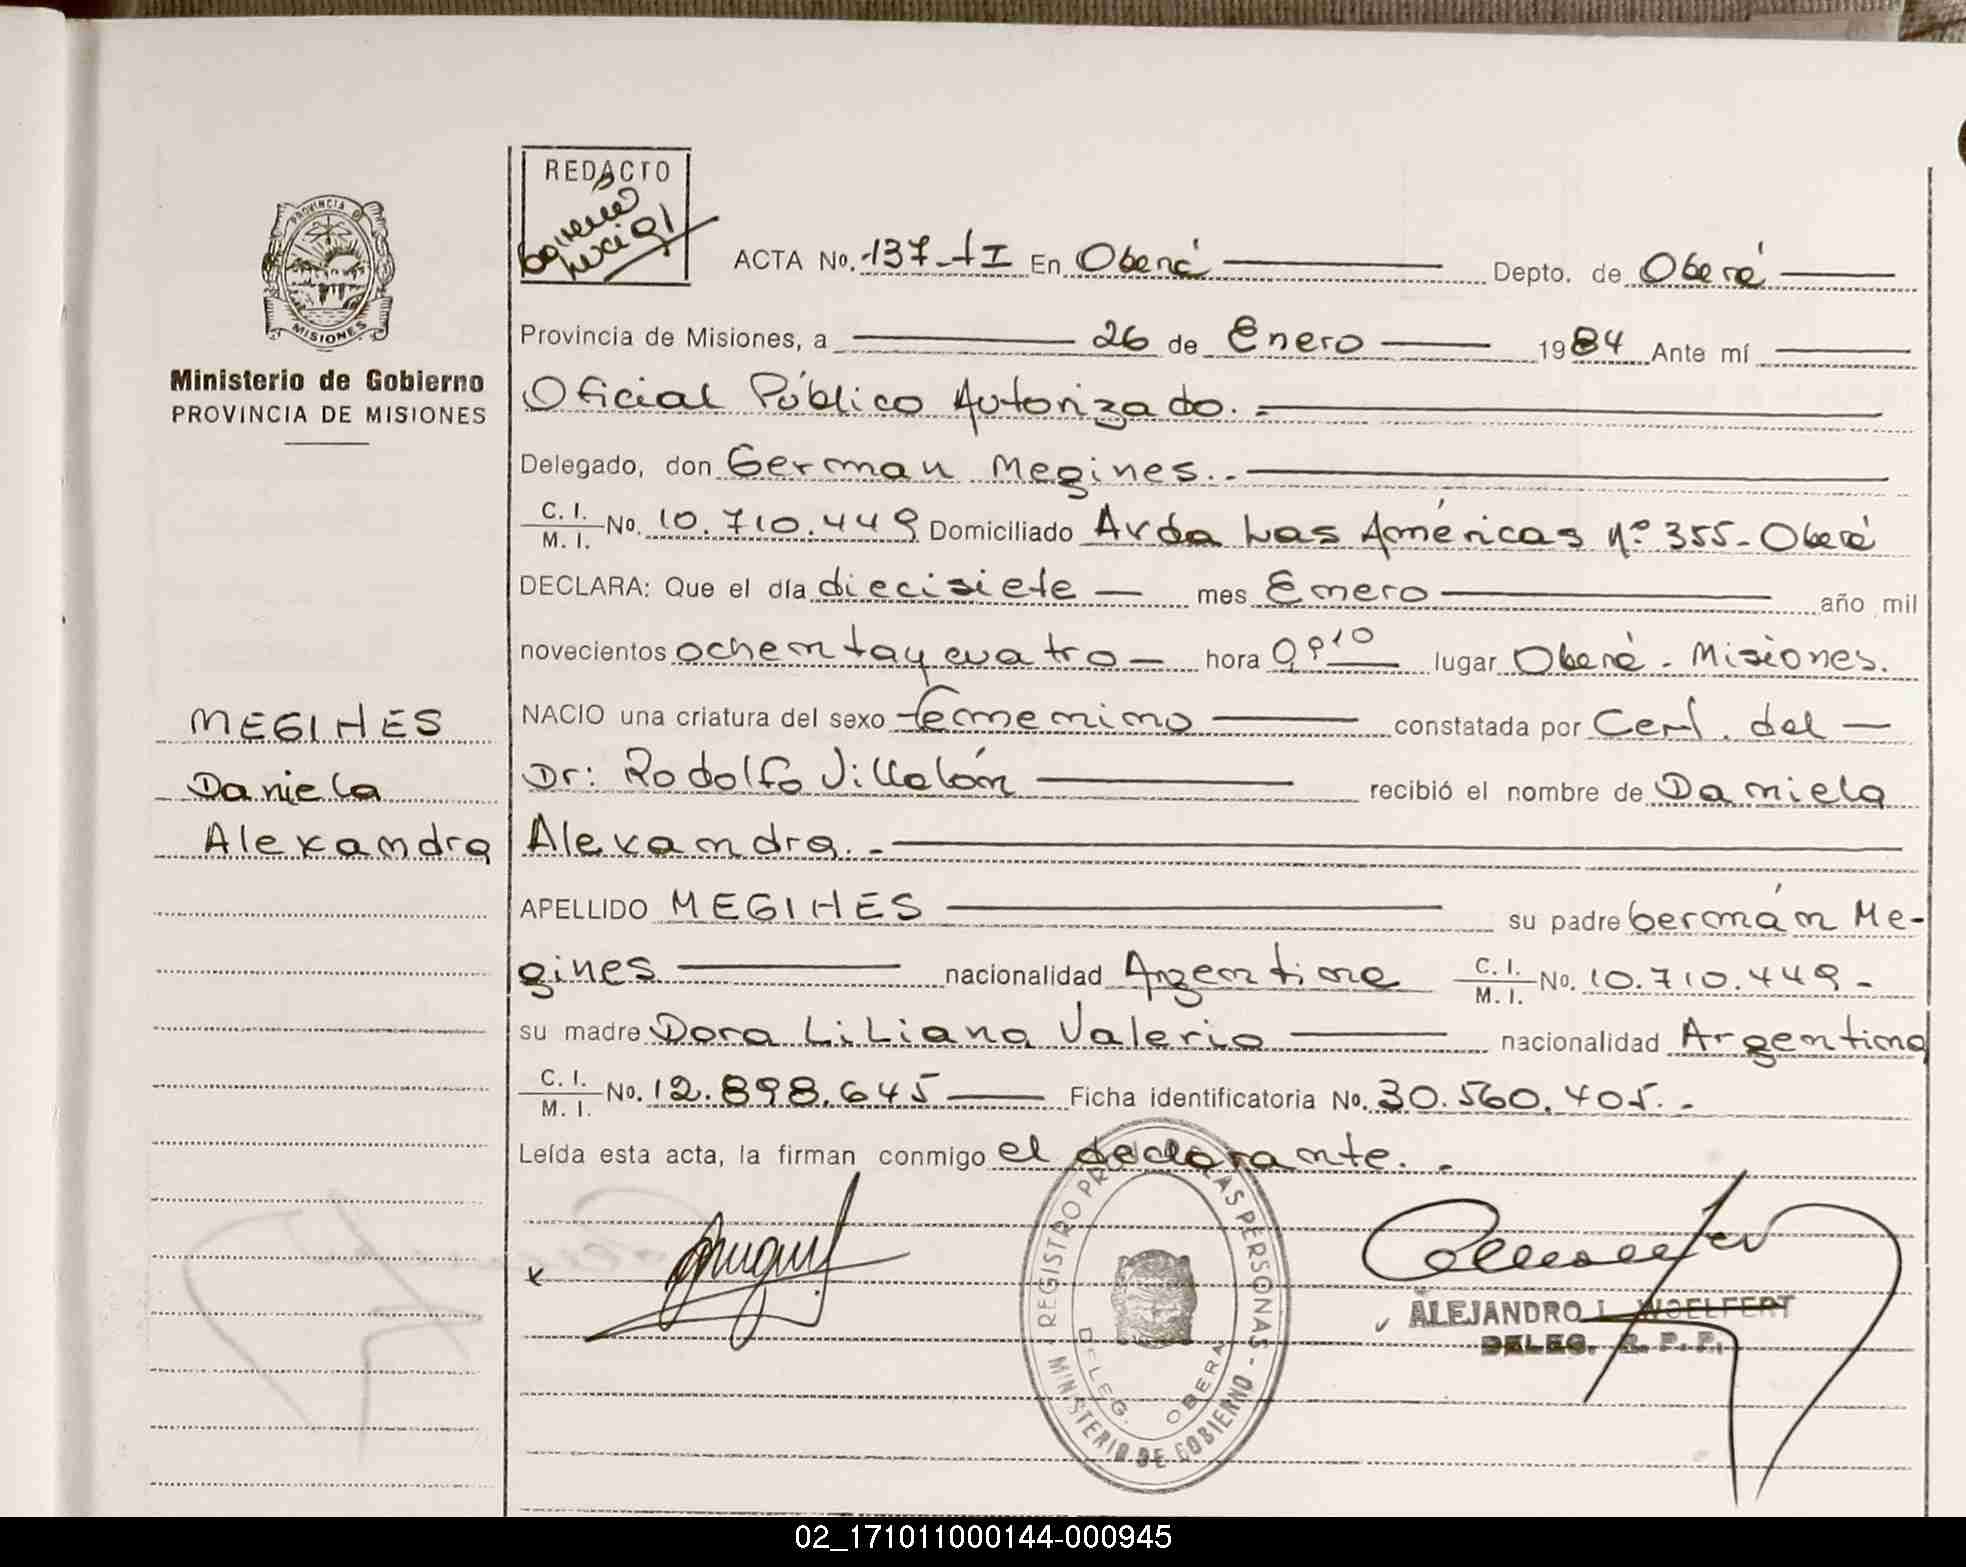 REDACTO
ACTA No. 137-tI En Oberá Depto. de Oberá
PROVINCIA D
MISIONES
Provincia de Misiones, a 26 de Enero 1984 Ante mí
Ministerio de Gobierno
PROVINCIA DE MISIONES
Oficial Público Autorizado.-
Delegado, don German Megines.-
C. I.
M. I. No. 10.710.449 Domiciliado Avda Las Américas Nº 355- Oberá
DECLARA: Que el día diecisiete mes Enero año mil
novecientos ochentaycuatro hora 09¹⁰ lugar Oberá - Misiones.
MEGINES
Daniela
Alexandra
NACIO una criatura del sexo femenino constatada por Cert. del
Dr: Rodolfo Villalón recibió el nombre de Daniela
Alexandra.-
APELLIDO MEGINES su padre Germán Me-
gines nacionalidad Argentina C. I.
M. I. No. 10.710.449-
su madre Dora Liliana Valerio nacionalidad Argentina
C. I.
M. I. No. 12.898.645 Ficha identificatoria No. 30.560.405.-
Leída esta acta, la firman conmigo el declarante.-
REGISTRO PR LAS PERSONAS - MINISTERIO DE GOBIERNO
DELEG. OBERA
ALEJANDRO L. WOELFERT
DELEG. R. P. P.
02_171011000144-000945